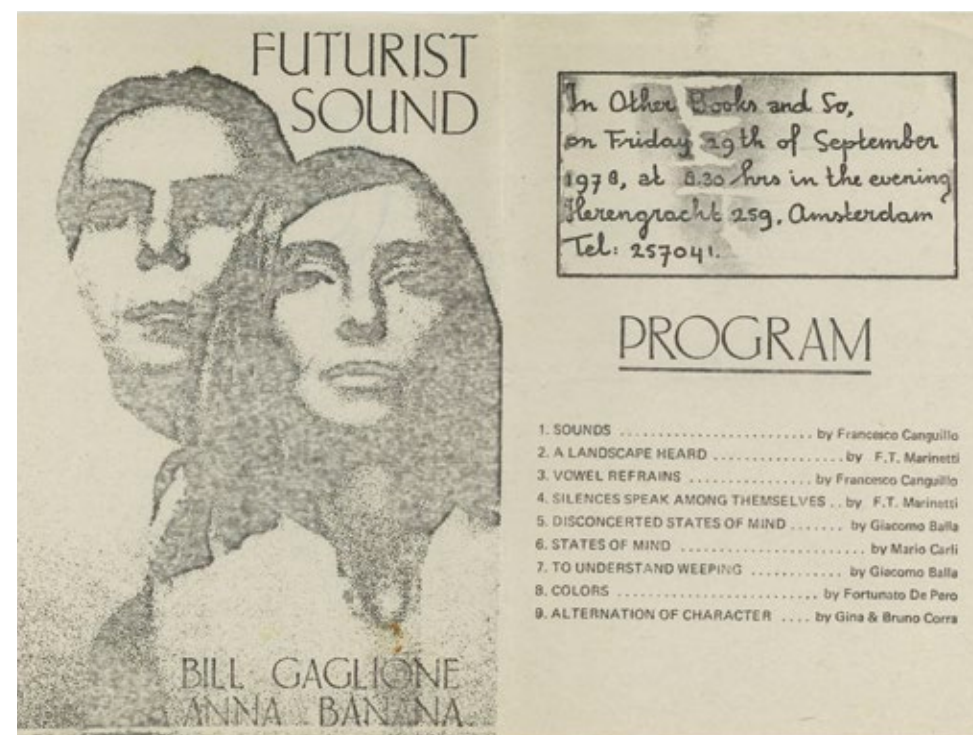 FUTURIST
SOUND
BILL GAGLIONE
ANNA BANANA
In Other Books and So,
on Friday 29th of September
1978, at 8.30 hrs in the evening
Herengracht 259, Amsterdam
Tel: 257041.
PROGRAM
1. SOUNDS ........................ by Francesco Canguillo
2. A LANDSCAPE HEARD ................. by F.T. Marinetti
3. VOWEL REFRAINS ................ by Francesco Canguillo
4. SILENCES SPEAK AMONG THEMSELVES .. by F.T. Marinetti
5. DISCONCERTED STATES OF MIND ....... by Giacomo Balla
6. STATES OF MIND ....................... by Mario Carli
7. TO UNDERSTAND WEEPING ............ by Giacomo Balla
8. COLORS ............................ by Fortunato De Pero
9. ALTERNATION OF CHARACTER .... by Gina & Bruno Corra